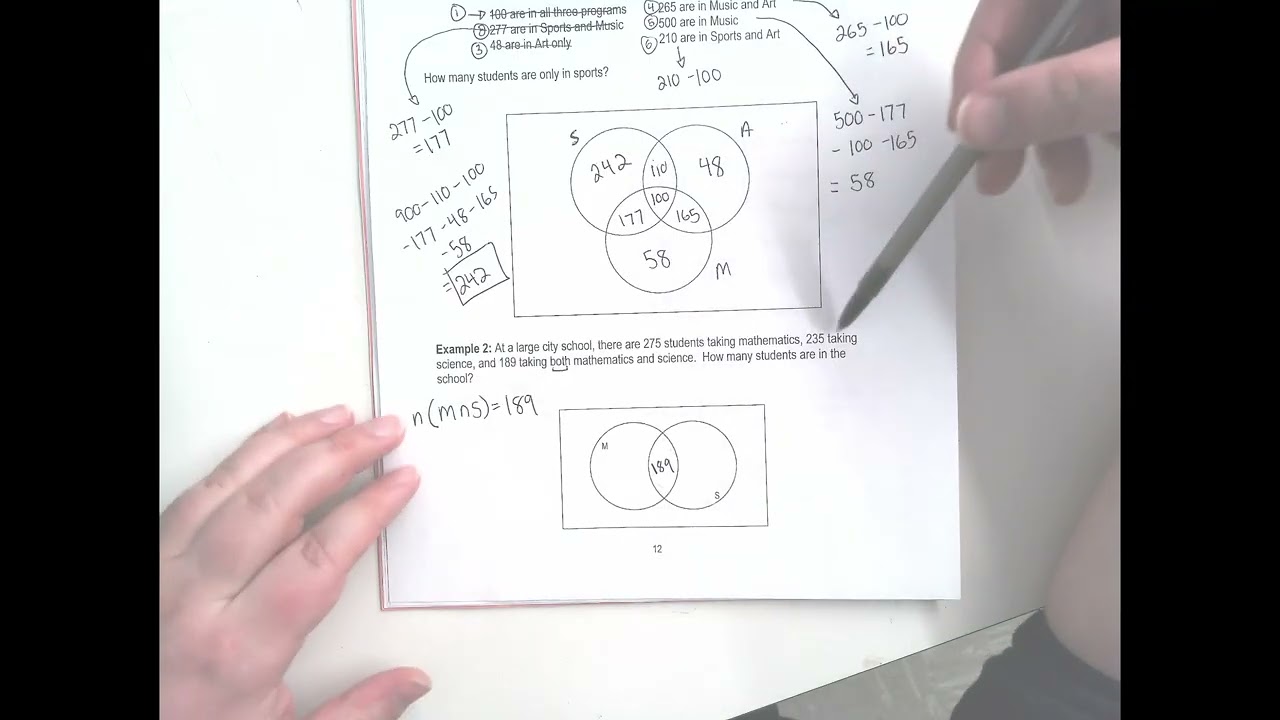 ① → 100 are in all three programs
② 277 are in Sports and Music
③ 48 are in Art only
④ 265 are in Music and Art
⑤ 500 are in Music
⑥ 210 are in Sports and Art
How many students are only in sports?
265 - 100
= 165
210 - 100
277 - 100
= 177
500 - 177
- 100 - 165
= 58
900 - 110 - 100
- 177 - 48 - 165
- 58
= 242
S
A
242
110
48
100
177
165
58
M
Example 2: At a large city school, there are 275 students taking mathematics, 235 taking
science, and 189 taking both mathematics and science. How many students are in the
school?
n(M∩S)=189
M
189
S
12